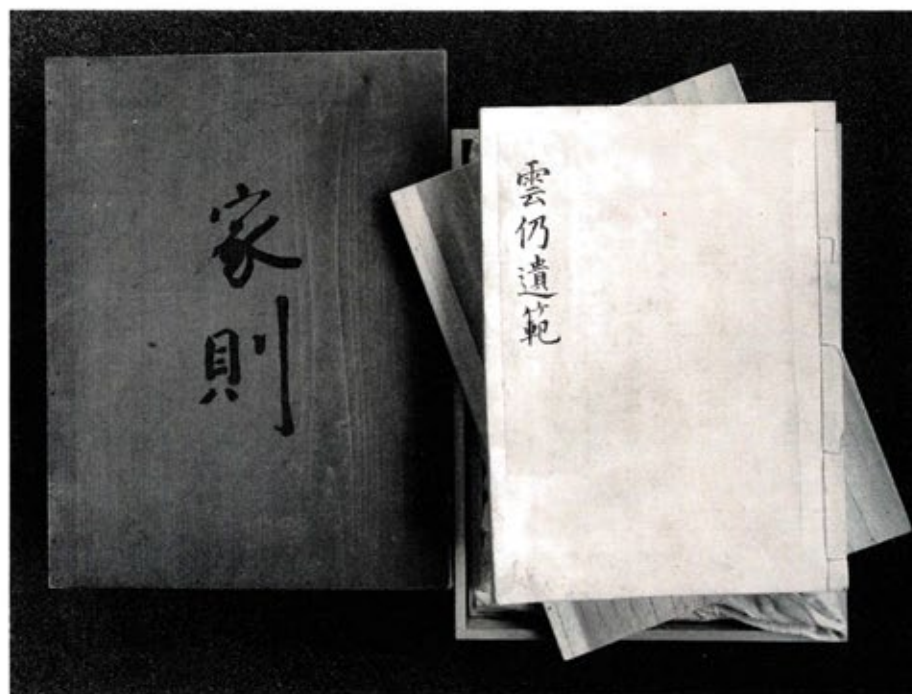 家則
雲仍遺範